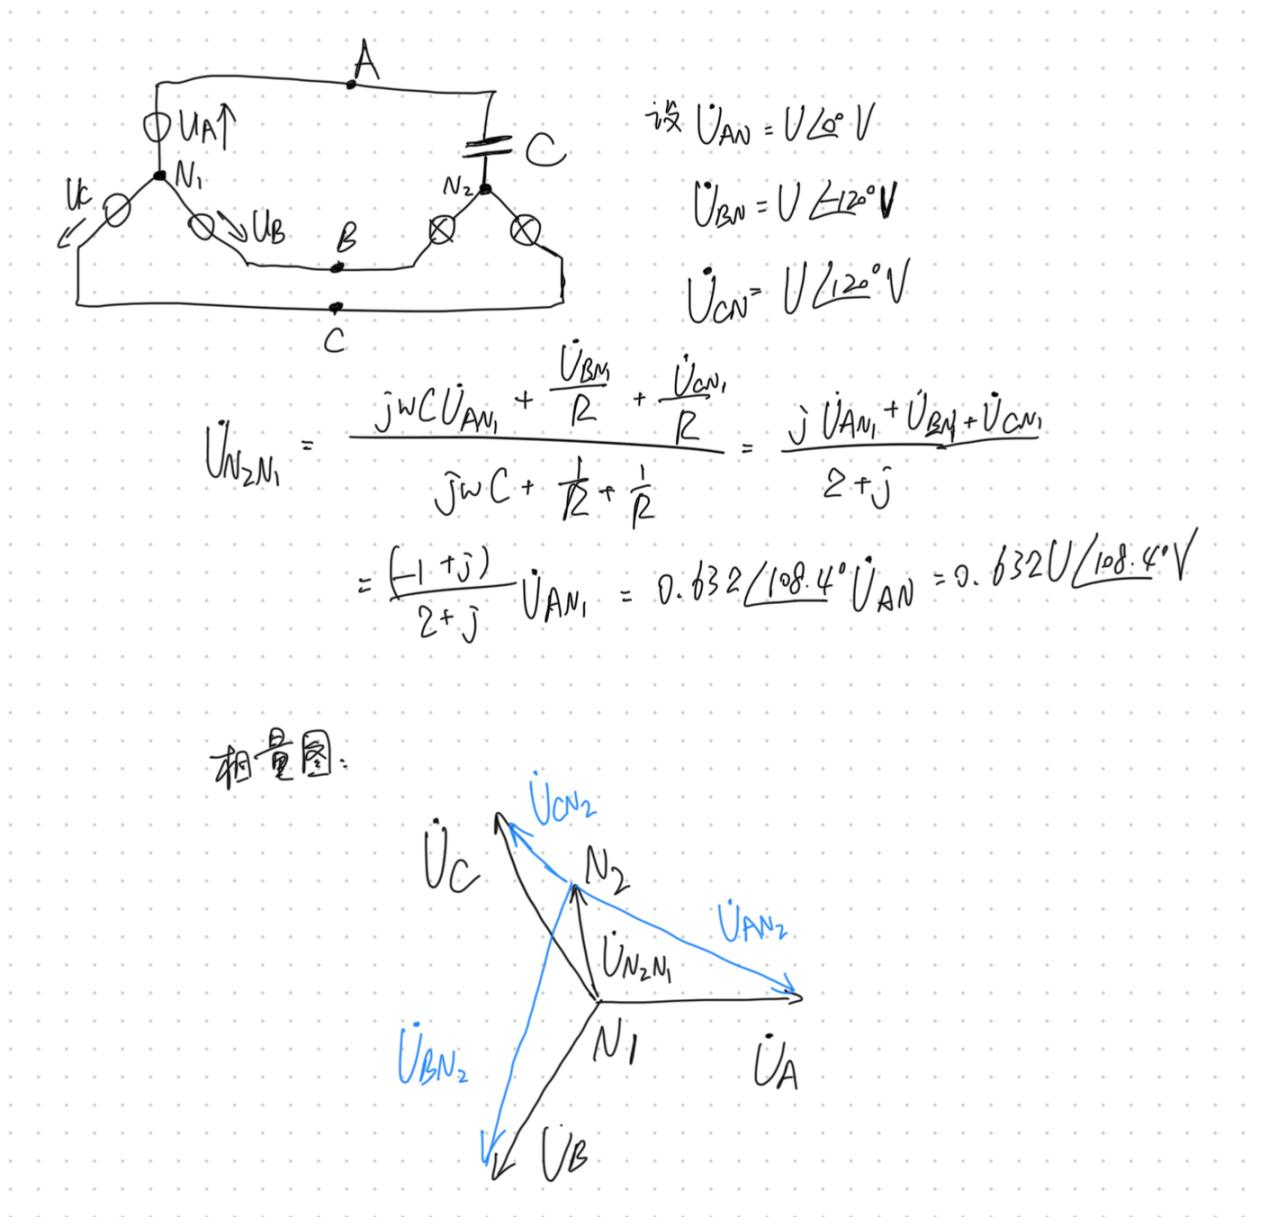 A
U_A↑
C
N₁
N₂
U_C
U_B
B
C
设 U̇_AN = U∠0° V
U̇_BN = U∠-120° V
U̇_CN = U∠120° V
U̇_N₂N₁ = (jwCU̇_AN₁ + U̇_BN₁/R + U̇_CN₁/R)/(jwC + 1/R + 1/R) = (jU̇_AN₁ + U̇_BN₁ + U̇_CN₁)/(2+j)
= (-1+j)/(2+j) U̇_AN₁ = 0.632∠108.4° U̇_AN = 0.632U∠108.4° V
相量图:
U̇_CN₂
U̇_C
N₂
U̇_AN₂
U̇_N₂N₁
N₁
U̇_BN₂
U̇_A
U̇_B